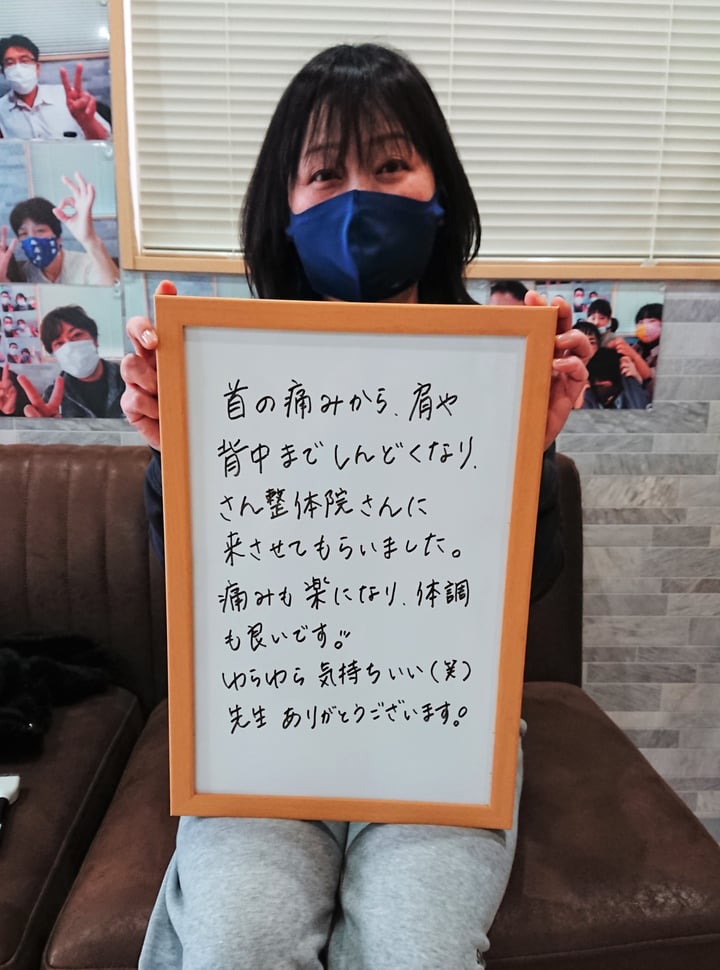 首の痛みから、肩や
背中までしんどくなり、
さん整体院さんに
来させてもらいました。
痛みも楽になり、体調
も良いです!!
ゆらゆら気持ちいい(笑)
先生 ありがとうございます!